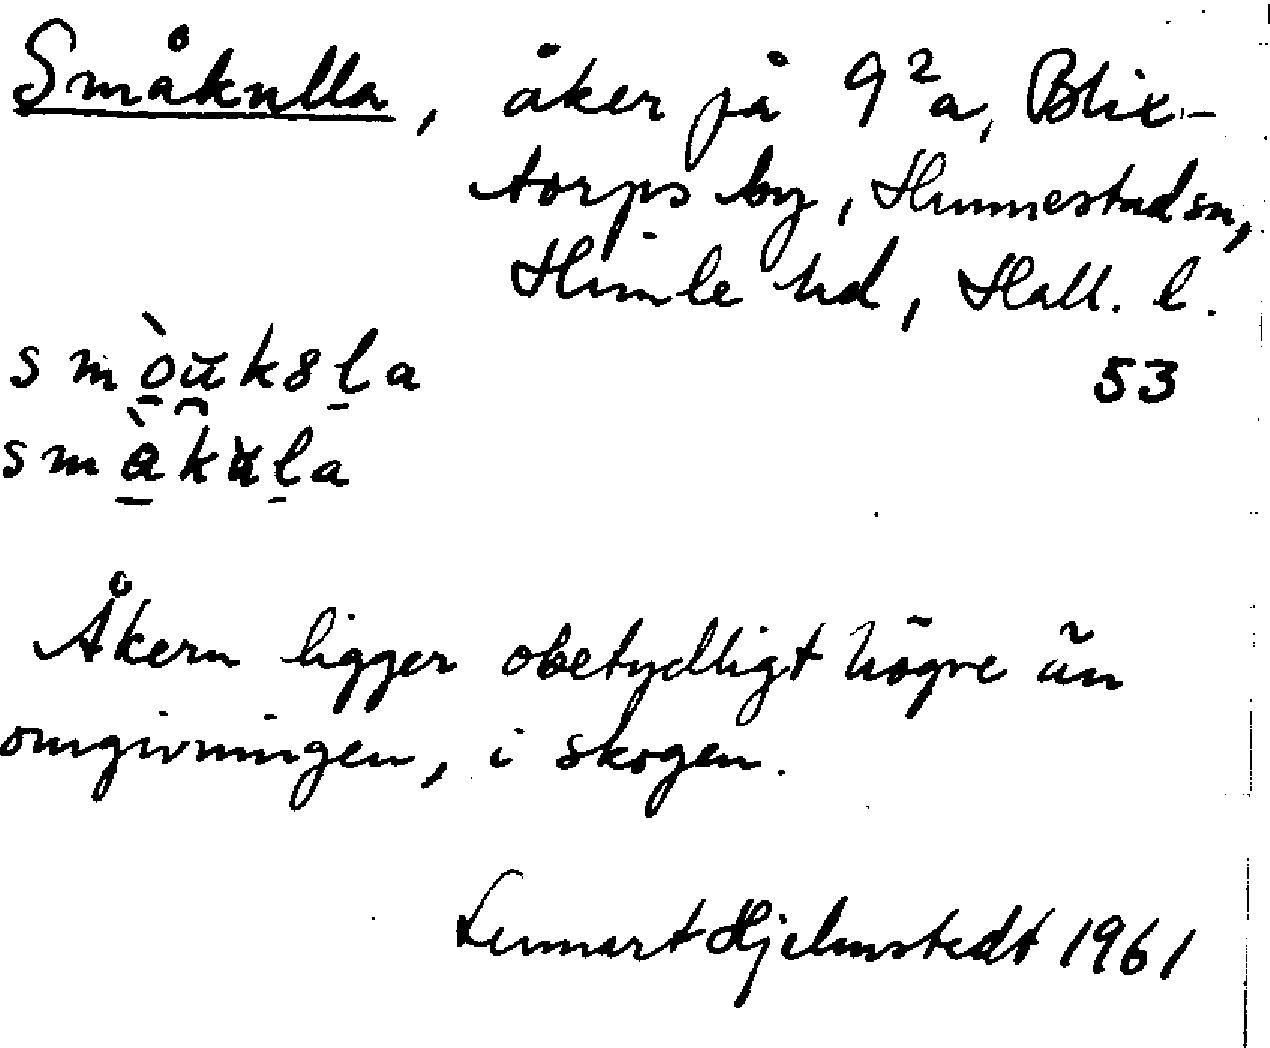 Småkulla, åker på 9²a, Blix-
torps by, Hunnestad sn,
Himle hd, Hall. l.
53
smòu̯k8l̠a
små̠̀kul̠a
Åkern ligger obetydligt högre än
omgivningen, i skogen.
Lennart Hjelmstedt 1961